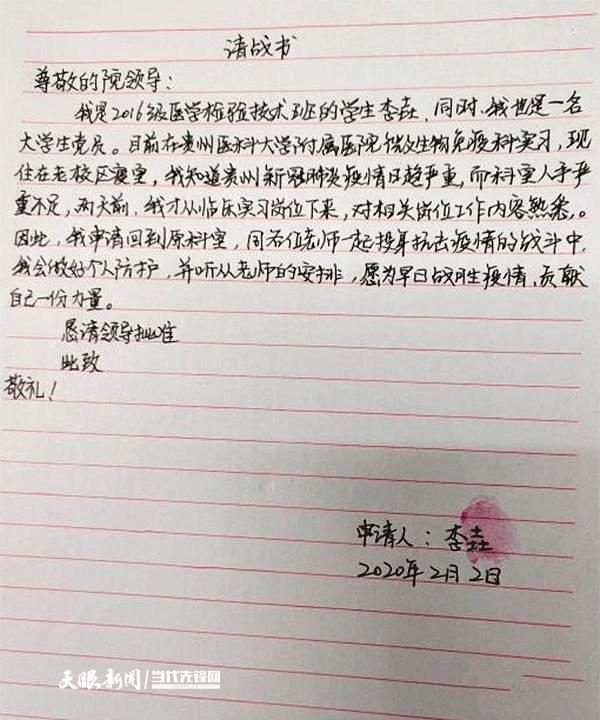 请战书
尊敬的院领导：
我是2016级医学检验技术班的学生李垚，同时，我也是一名
大学生党员。目前在贵州医科大学附属医院微生物免疫科实习，现
住在老校区寝室，我知道贵州新冠肺炎疫情日趋严重，而科室人手严
重不足，两天前，我才从临床实习岗位下来，对相关岗位工作内容熟悉。
因此，我申请回到原科室，同各位老师一起投身抗击疫情的战斗中，
我会做好个人防护，并听从老师的安排，愿为早日战胜疫情，贡献
自己一份力量。
恳请领导批准
此致
敬礼！
申请人：李垚
2020年2月2日
天眼新闻 当代先锋网